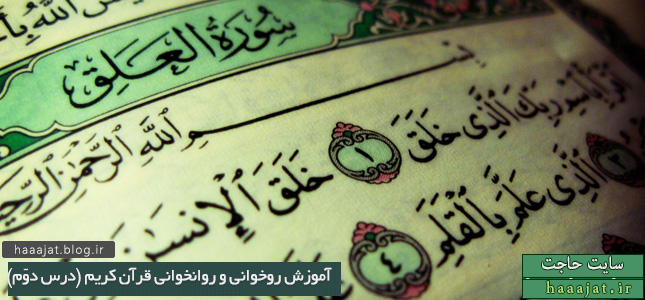 سُورَةُ الْعَلَقِ
بِسْمِ ٱللَّهِ ٱلرَّحْمَٰنِ ٱلرَّحِيمِ
ٱقْرَأْ بِٱسْمِ رَبِّكَ ٱلَّذِى خَلَقَ ١ خَلَقَ ٱلْإِنسَٰنَ
٣ ٱلَّذِى عَلَّمَ بِٱلْقَلَمِ ٤
haaajat.blog.ir
آموزش روخوانی و روانخوانی قرآن کریم (درس دوّم)
سایت حاجت
haaajat.ir